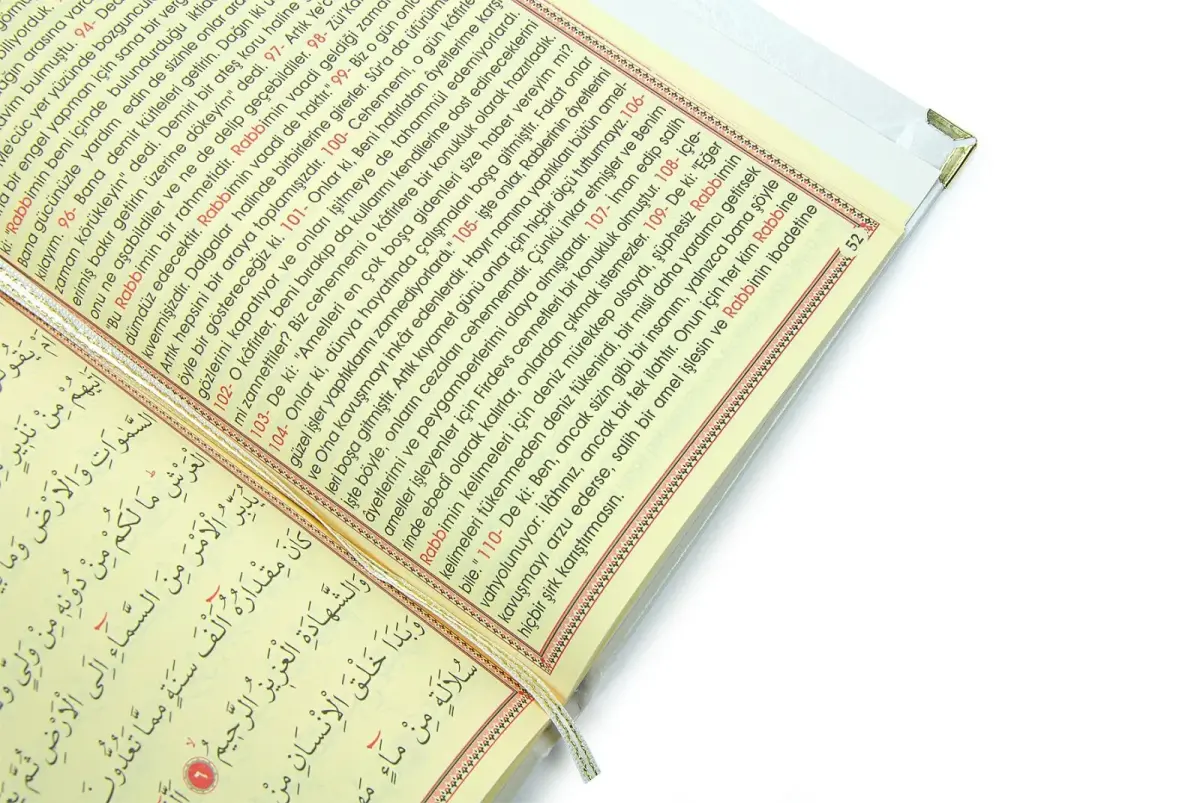 94- Dedi
Me'cüc yer yüzünde bozguncul
na bir engel yapman için sana bir verg
ki: "Rabbimin beni içinde bulundurduğu iktid
bana gücünüzle yardım edin de sizinle onlar ara
klayım. 96- Bana demir kütleleri getirin. Dağın iki u
zaman "körükleyin" dedi. Demiri bir ateş koru haline
erimiş bakır getirin üzerine dökeyim" dedi. 97- Artık Ye'c
onu ne aşabildiler ve ne de delip geçebildiler. 98- Zül'Ka
"Bu Rabbimin bir rahmetidir. Rabbimin vaadi geldiği zama
dümdüz edecektir. Rabbimin vaadi de haktır." 99- Biz o gün onl
kıvermişizdir. Dalgalar halinde birbirlerine girerler, Sûr'a da üfürülmü
Artık hepsini bir araya toplamışızdır. 100- Cehennemi, o gün kâfirle
öyle bir göstereceğiz ki, 101- Onlar ki, Beni hatırlatan âyetlerime karşı
gözlerini kapatıyor ve onları işitmeye de tahammül edemiyorlardı.
102- O kâfirler, beni bırakıp da kullarımı kendilerine dost edineceklerini
mi zannettiler? Biz cehennemi o kâfirlere bir konukluk olarak hazırladık.
103- De ki: "Amelleri en çok boşa gidenleri size haber vereyim mi?
104- Onlar ki, dünya hayatında çalışmaları boşa gitmiştir. Fakat onlar
güzel işler yaptıklarını zannediyorlardı. 105- İşte onlar Rablerinin âyetlerini
ve O'na kavuşmayı inkâr edenlerdir. Hayır namına yaptıkları bütün amel-
leri boşa gitmiştir. Artık kıyamet günü onlar için hiçbir ölçü tutturmayız. 106-
İşte böyle, onların cezaları cehennemdir. Çünkü inkar etmişler ve Benim
âyetlerimi ve peygamberlerimi alaya almışlardır. 107- İman edip salih
ameller işleyenler için Firdevs cennetleri bir konukluk olmuştur. 108- İçle-
rinde ebedî olarak kalırlar, onlardan çıkmak istemezler. 109- De ki: "Eğer
Rabbimin kelimeleri için deniz mürekkep olsaydı, şüphesiz Rabbimin
kelimeleri tükenmeden deniz tükenirdi, bir misli daha yardımcı getirsek
bile." 110- De ki: Ben, ancak sizin gibi bir insanım, yalnızca bana şöyle
vahyolunuyor: İlâhınız, ancak bir tek ilahtır. Onun için her kim Rabbine
kavuşmayı arzu ederse, salih bir amel işlesin ve Rabbinin ibadetine
hiçbir şirk karıştırmasın.
52
مِنْ نَذِيرٍ
السَّمٰوَاتِ وَالْاَرْضَ وَمَا
الْعَرْشِ مَا لَكُمْ مِنْ دُونِهِ مِنْ وَلِيٍّ
يُدَبِّرُ الْاَمْرَ مِنَ السَّمَاءِ اِلَى الْاَرْضِ ثُمَّ
كَانَ مِقْدَارُهُ اَلْفَ سَنَةٍ مِمَّا تَعُدُّونَ
وَالشَّهَادَةِ الْعَزِيزُ الرَّحِيمُ ٦
وَبَدَاَ خَلْقَ الْاِنْسَانِ مِنْ
سُلَالَةٍ مِنْ مَاءٍ